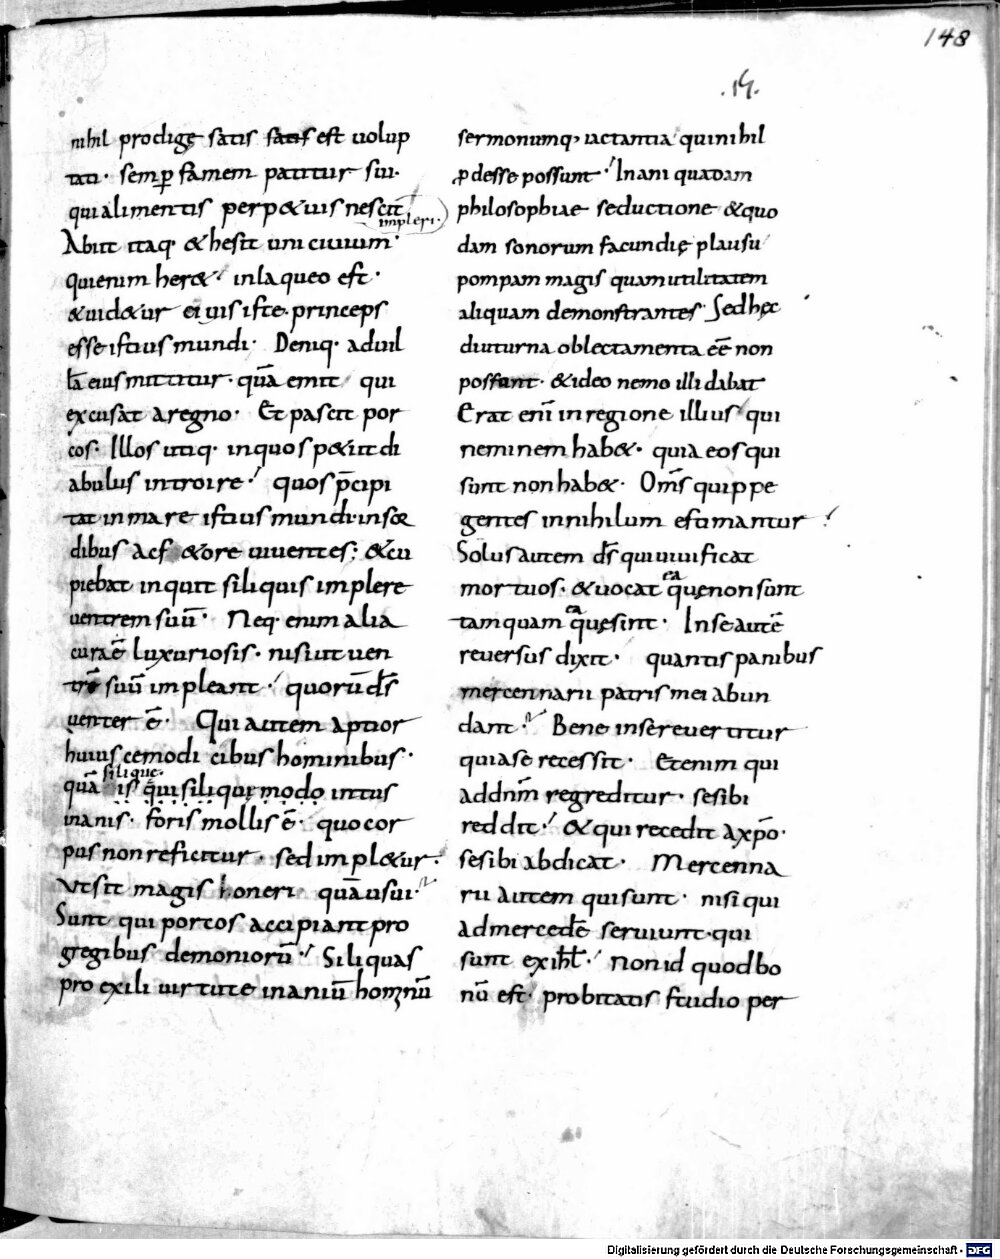 148
.15.
nihil prodigę satis satis est uolup
tati. semp̄ famem patitur sui.
qui alimentis perp&uis nescit
impleri.
Abiit itaq. & hesit uni ciuium.
qui enim her& inlaqueo est.
& uid&ur ei uis iste. princeps
esse istius mundi. Deniq. aduil
lā eius mittitur. quā emit qui
excusat a regno. Et pascit por
cos. Illos utiq. inquos p&iit di
abulus introire quos p̄cipi
tat in mare istius mundi. insor
dibus ac f&ore uiuentes; & cu
piebat inquit siliquis implere
uentrem suū. Neq. enim alia
cura ē luxuriosis. nisi ut uen
trē suū impleant quorū d̄s
uenter ē. Qui autem aptior
huiuscemodi cibus hominibus.
silique.
quā is qui siliquę modo intus
inanis. foris mollis ē. quo cor
pus non reficitur. sed impl&ur.
Vt sit magis honeri quā usui.
Sunt qui porcos accipiant pro
gregibus demoniorū Siliquas
pro exili uirtute inaniū hominū
sermonumq, iactantia qui nihil
ꝓdesse possunt Inani quadam
philosophiae seductione & quo
dam sonorum facundię plausu
pompam magis quam utilitatem
aliquam demonstrantes Sed hęc
diuturna oblectamenta eē non
possunt. & ideo nemo illi dabat
Erat eni in regione illius qui
neminem hab&. quia eos qui
sunt non hab&. Om̄s quippe
gentes in nihilum estimantur
Solus autem d̄s qui uiuificat
mortuos. & uocat ea quę non sunt
tamquam ea quę sint. In se autē
reuersus dixit. quantis panibus
mercennarii patris mei abun
dant. Bene in se reuertitur
qui a se recessit. Etenim qui
ad dn̄m regreditur. se sibi
reddit & qui recedit a xp̄o.
se sibi abdicat. Mercenna
rii autem qui sunt. nisi qui
ad mercedē seruiunt. qui
sunt ex ihl̄. Non id quod bo
nū est. probitatis studio per
Digitalisierung gefördert durch die Deutsche Forschungsgemeinschaft - DFG